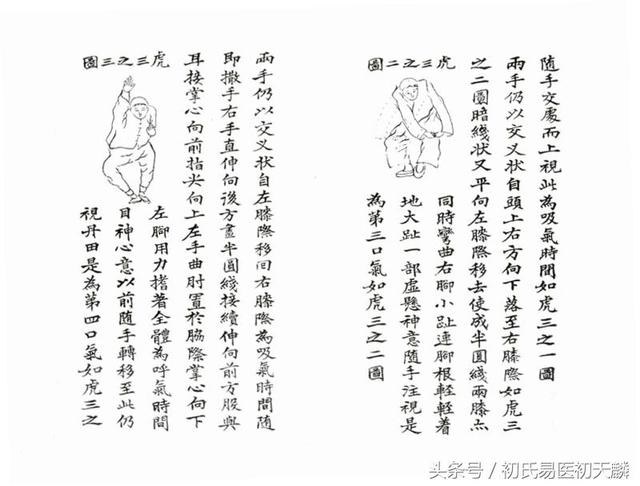 隨手交處而上視此為吸氣時間如虎三之一圖
兩手仍以交义状自頭上右方向下落至右膝際如虎三
之二圖暗綫状又平向左膝際移去使成半圓綫兩膝点
虎三之二圖
同時彎曲右腳小趾連腳根輕輕着
地大趾一部虛懸神意隨手注視是
為第三口氣如虎三之二圖
兩手仍以交义状自左膝際移囘右膝際為吸氣時間隨
即撒手右手直伸向後方畫半圓綫接續伸向前方股與
耳接掌心向前指尖向上左手曲肘置於脇際掌心向下
虎三之三圖
左腳用力揩著全體為呼氣時間
目神心意以前隨手轉移至此仍
視丹田是為第四口氣如虎三之
头条号 / 初氏易医初天麟